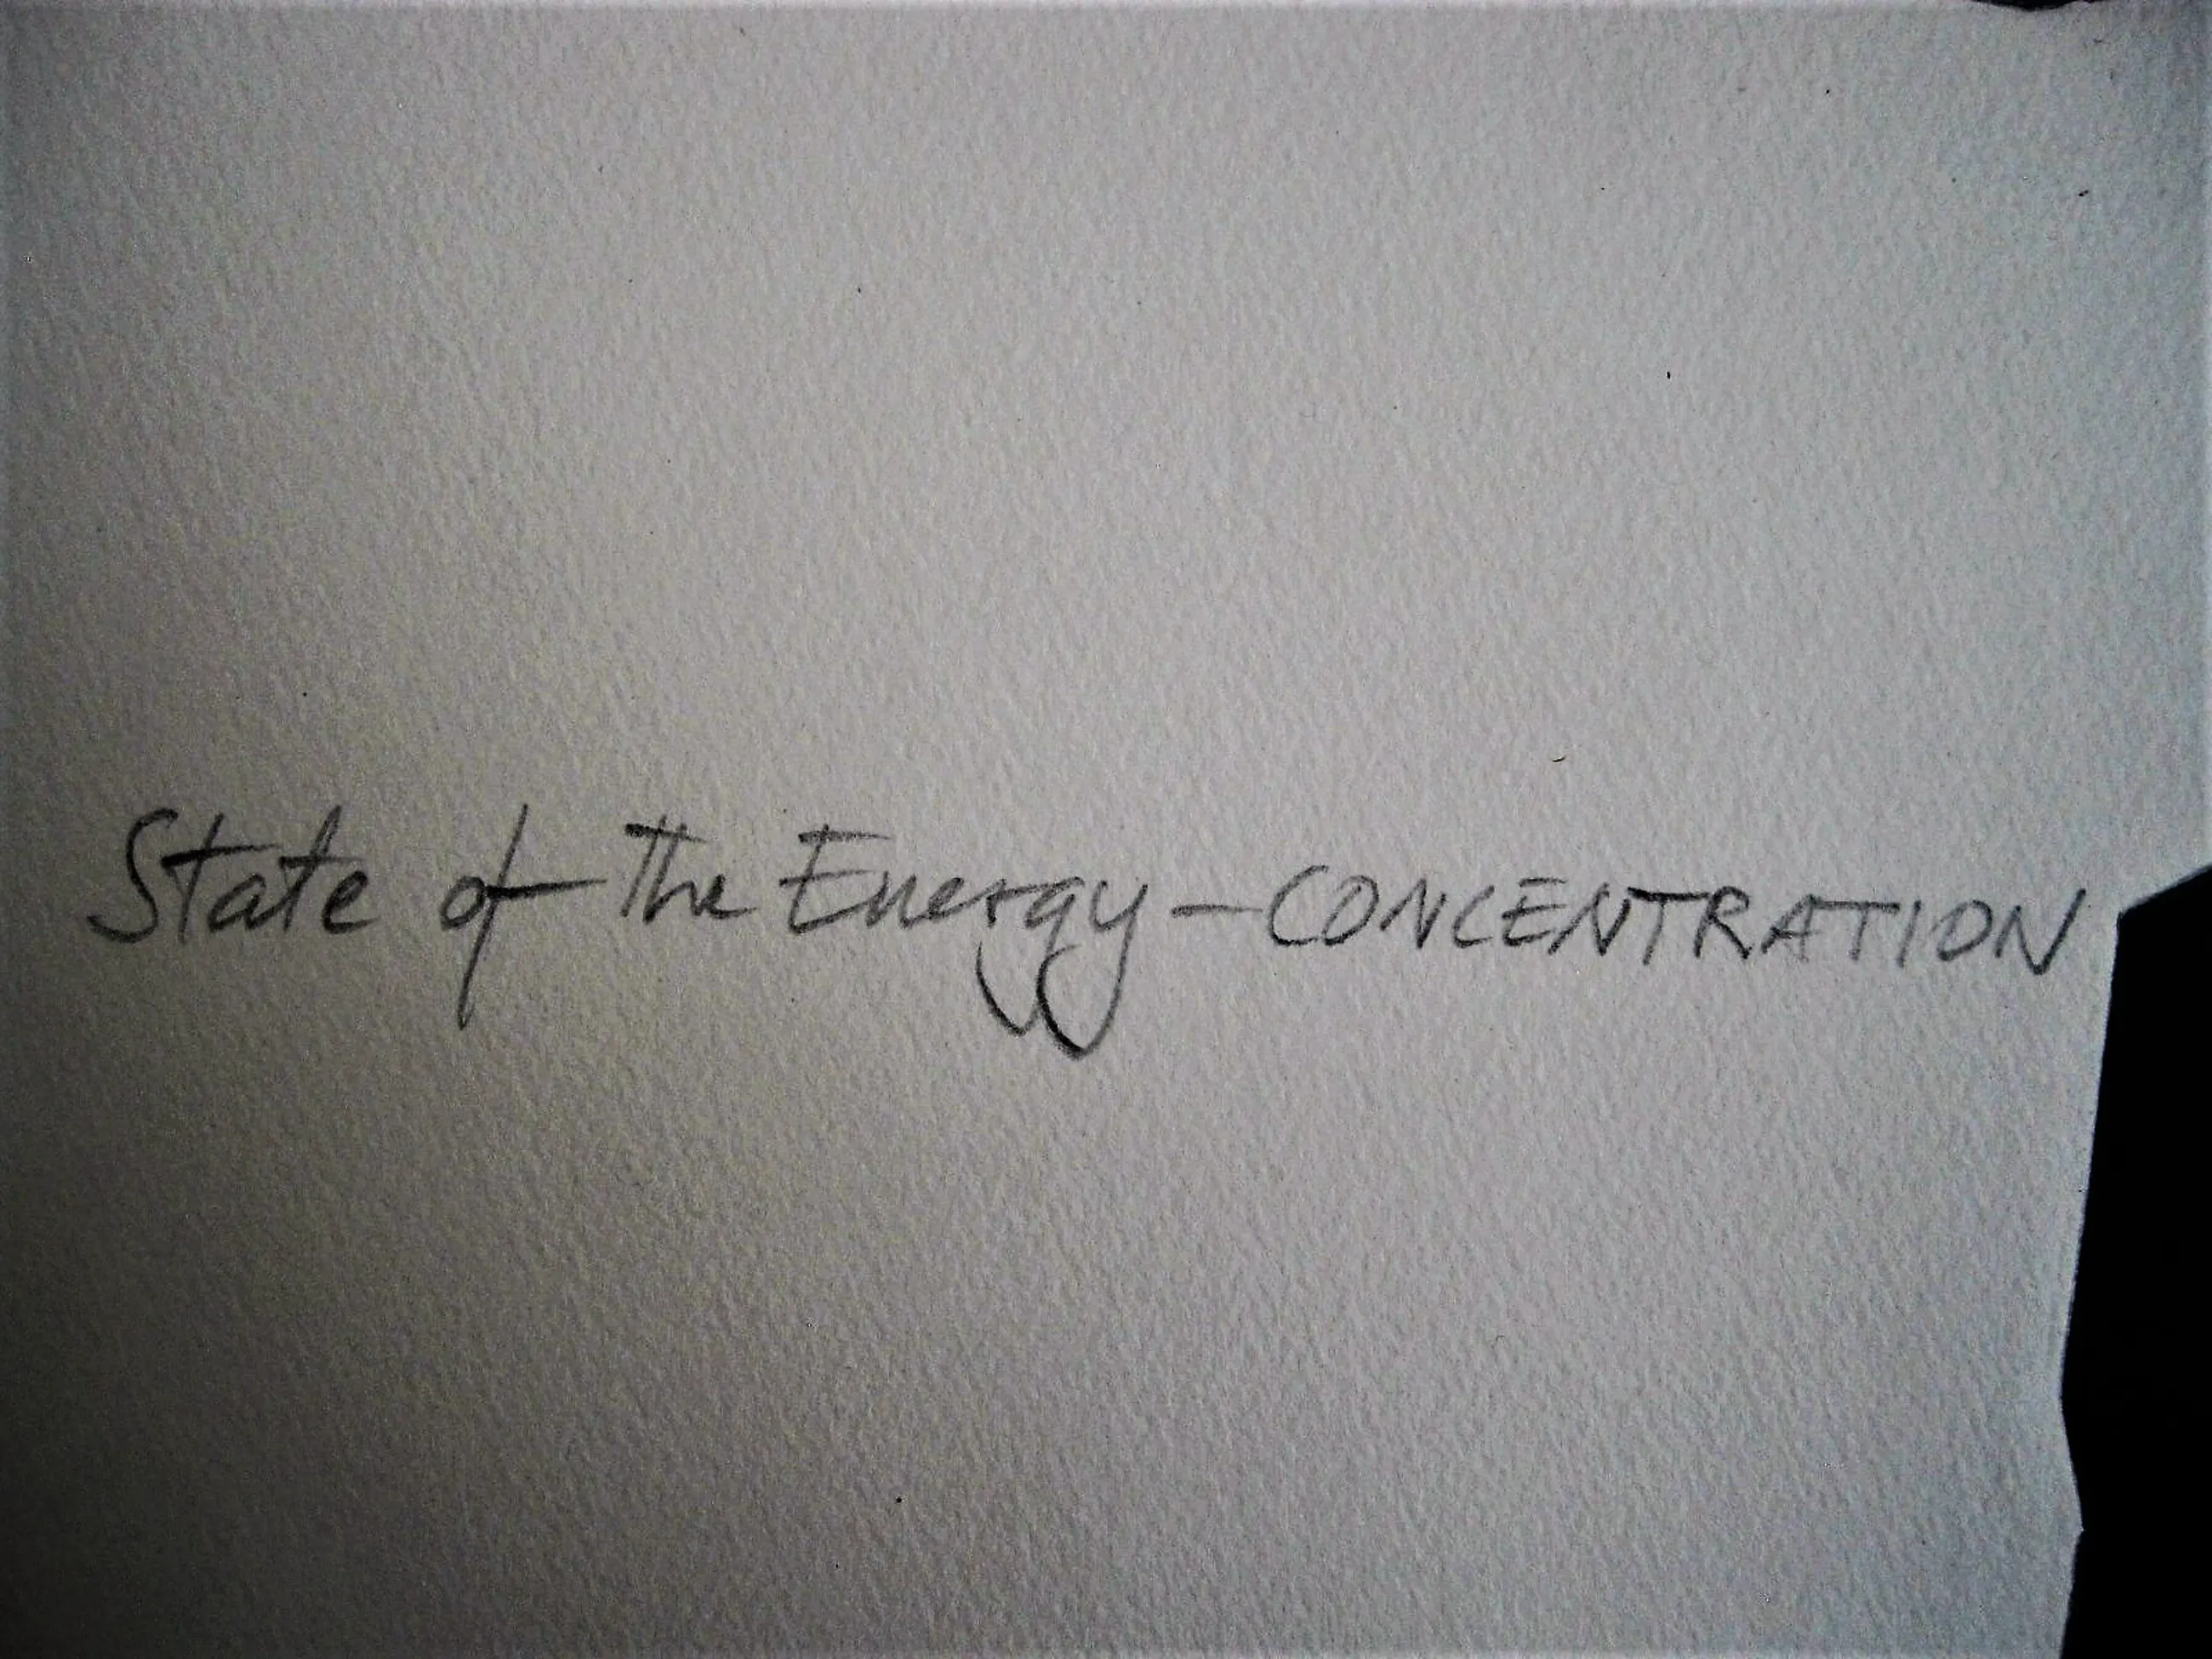 State of the Energy - CONCENTRATION